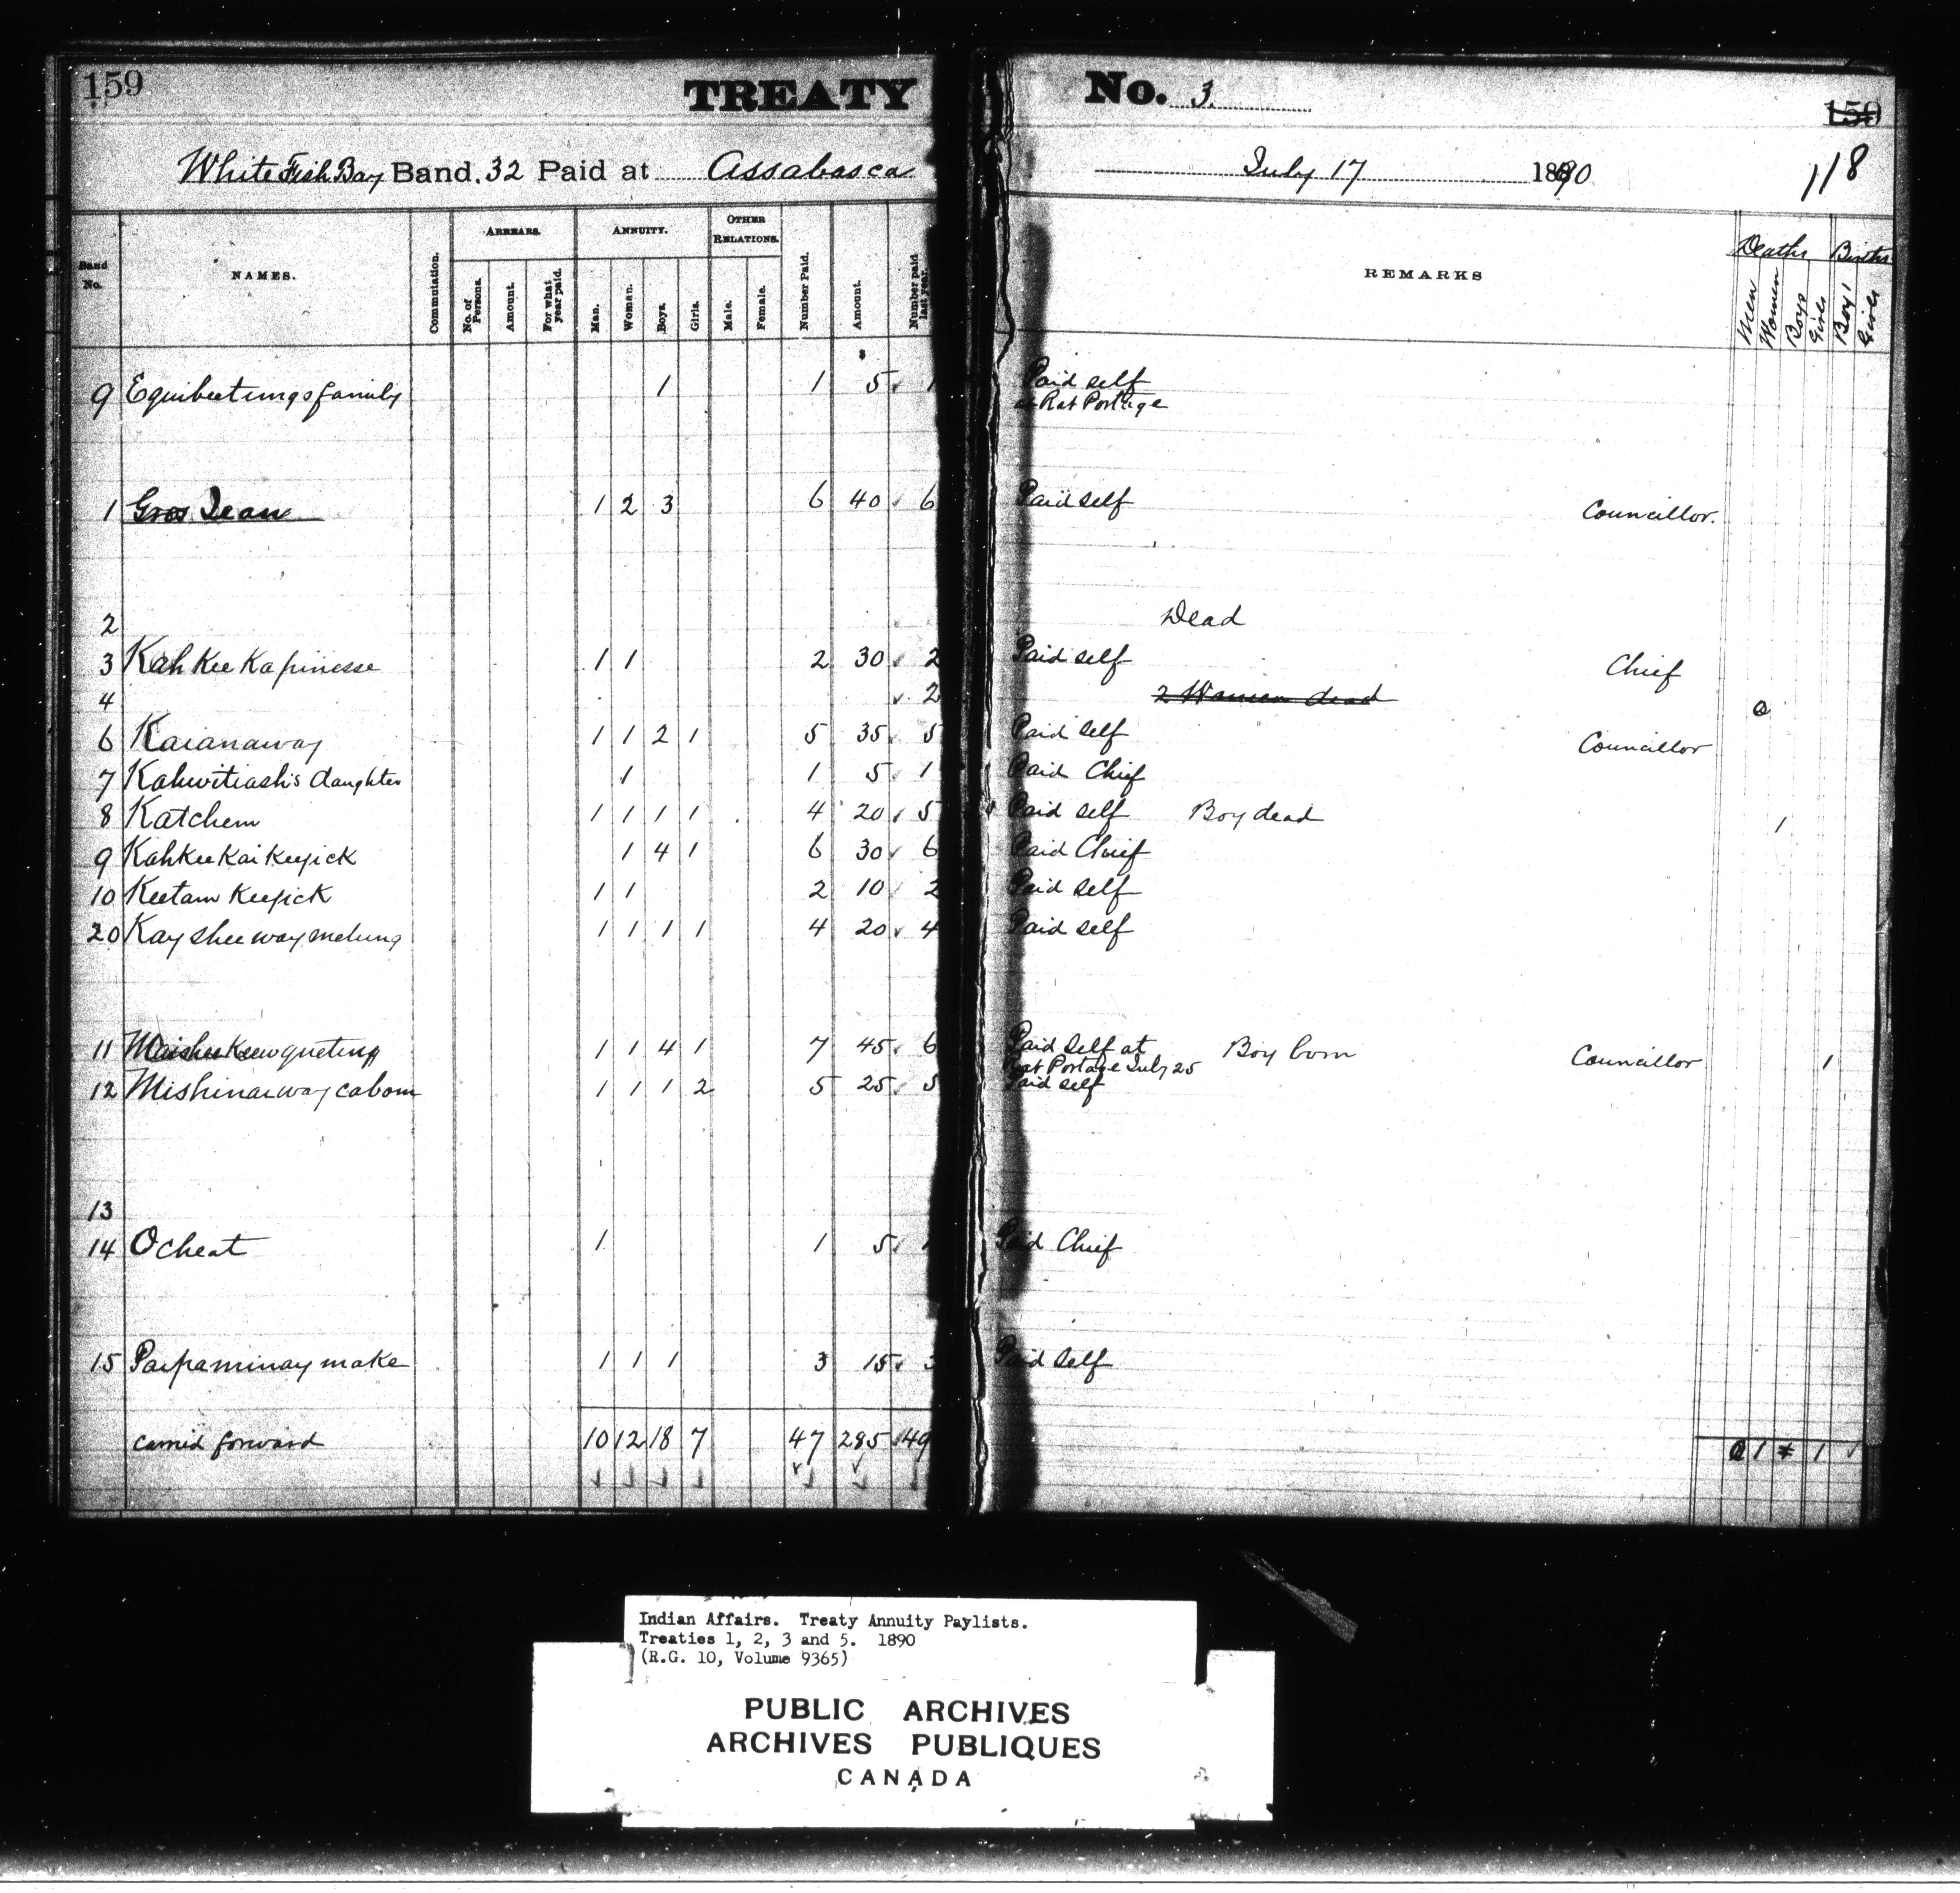 159 TREATY No. 3. 159
White Fish Bay Band. 32 Paid at Assabasca July 17 1890 118
Band No. NAMES. Commutation. ARREARS. No. of Persons. Amount. For what year paid. ANNUITY. Man. Woman. Boys. Girls. OTHER RELATIONS. Male. Female. Number Paid. Amount. Number paid last year. REMARKS Deaths Men Women Boys Girls Births Boys Girls
9 Equibeetungs family 1 1 5 1 Paid self
at Rat Portage
1 Gros Jean 1 2 3 6 40 6 Paid self Councillor.
2 Dead
3 Kah Kee Ka pinesse 1 1 2 30 2 Paid self Chief
4 2 2 Woman dead
6 Kaianaway 1 1 2 1 5 35 5 Paid self Councillor
7 Kahwitiash's daughter 1 1 5 1 Paid Chief
8 Katchem 1 1 1 1 4 20 5 Paid self Boy dead 1
9 Kahkee Kai Keejick 1 4 1 6 30 6 Paid Chief
10 Keetam Keejick 1 1 2 10 2 Paid self
20 Kay shee way metung 1 1 1 1 4 20 4 Paid self
11 1 1 4 1 7 45 6 Paid self at Boy born Councillor 1
Rat Portage July 25
12 Mishinaiway cabow 1 1 1 2 5 25 5 Paid self
13
14 Ocheat 1 1 5 1 Paid Chief
15 Paipaminay make 1 1 1 3 15 3 Paid self
carried forward 10 12 18 7 47 285 49 1 1 1
Indian Affairs. Treaty Annuity Paylists.
Treaties 1, 2, 3 and 5. 1890
(R.G. 10, Volume 9365)
PUBLIC ARCHIVES
ARCHIVES PUBLIQUES
CANADA